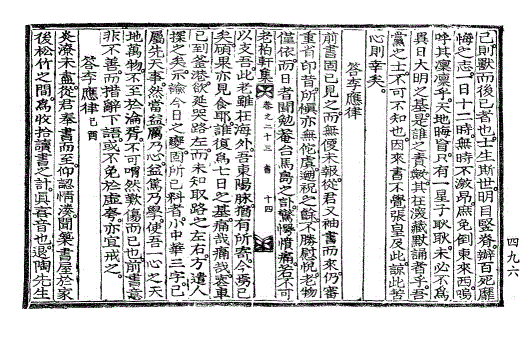 己則獸而後已者也。士生斯世。明目竪脊。辦百死靡
悔之志。一日十二時。無時不激昂。庶免倒東來西。嗚
呼其凜凜乎。天地晦盲。只有一星子耿耿。未必不爲
異日大明之基。是誰之責歟。其在滾藏默誦者乎。吾
黨之士不可不知也。因來書不覺張皇及此。諒此苦
心則幸矣。
答李應律
前書固已見之而無便未報。從君又袖書而來。仍審
重省印昔。所愼亦無佗虞。遡祝之餘。不勝慰悅。老物
僅依。而日者聞勉菴台馬島之訃。驚慟憤痛。若不可
老柏軒集 卷之二十三 書 十四
以支吾。此老雖在海外。吾東陽脉猶有所寄。今焉已
矣。碩果亦見食耶。誰復爲七日之基。痛哉痛哉。東
已到釜港。欲延哭路左而未知取路之左右。方遣人
探之矣。示諭今日之變。固所已料者。小中華三字。已
屬先天事。然當益厲乃心。益篤乃學。使吾一心之天
地萬物。不至於淪胥。不可喟然歎傷而已也。前書意
非不善。而措辭下語。或不免於虛夸。亦宜戒之。
答李應律 己酉
炎潦未盡。從君奉書而至。仰認情 聞築書屋於家
後松竹之間。爲收拾讀書之計。眞 音也。退陶先生
四九六